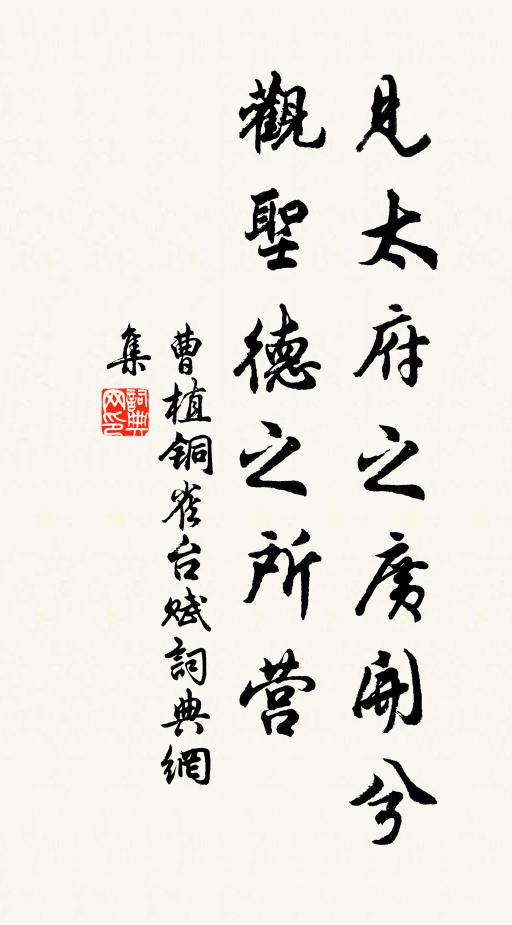 見太府之廣開兮
觀聖德之所营
曹植铜雀台赋詞典網
集
詞典网印